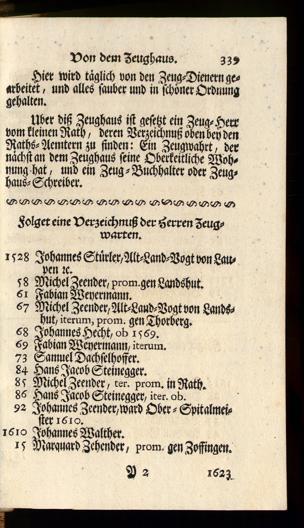 Von dem Zeughaus. 339
Hier wird täglich von den Zeug-Dienern ge-
arbeitet, und alles sauber und in schöner Ordnung
gehalten.
Uber diß Zeughaus ist gesetzt ein Zeug-Herr
vom kleinen Rath, deren Verzeichnuß oben bey den
Raths-Aemtern zu finden: Ein Zeugwahrt, der
nächst an dem Zeughaus seine Oberkeitliche Woh-
nung hat, und ein Zeug-Buchhalter oder Zeug-
haus-Schreiber.
Folget eine Verzeichnuß der Herren Zeug-
warten.
1528 Johannes Stürler, Alt-Land-Vogt von Lau-
pen ꝛc.
58 Michel Zeender, prom. gen Landshut.
61 Fabian Weyermann.
67 Michel Zeender, Alt-Land-Vogt von Lands-
hut, iterum, prom. gen Thorberg.
68 Johannes Hecht, ob 1569.
69 Fabian Weyermann, iterum.
73 Samuel Dachselhoffer.
84 Hans Jacob Steinegger.
85 Michel Zeender, ter. prom. in Rath.
86 Hans Jacob Steinegger, iter. ob.
92 Johannes Zeender, ward Ober-Spitalmei-
ster 1610.
1610 Johannes Walther.
15 Marquard Zehender, prom. gen Zoffingen.
Y 2 1623